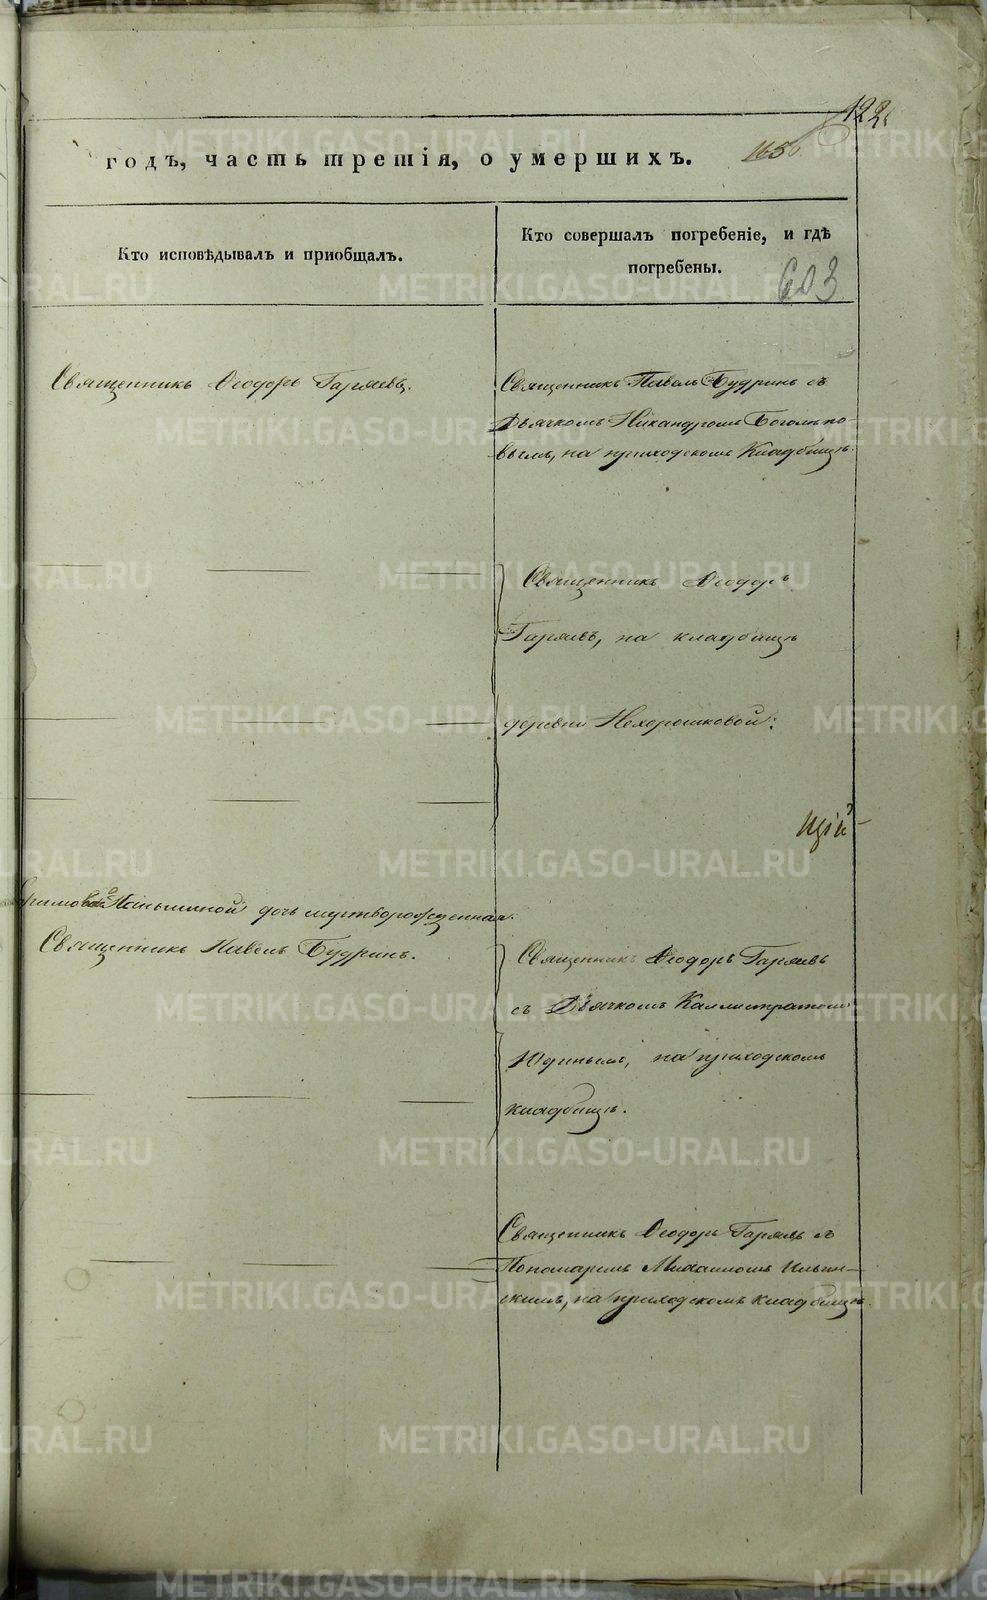 122
годъ, часть третія, о умершихъ.
165
Кто исповѣдывалъ и приобщалъ.
Кто совершалъ погребеніе, и гдѣ
погребены.
603
Священникъ Ѳеодоръ Гаряевъ.
Священникъ Павелъ Будринъ съ
Дьячкомъ Никандромъ Боголѣпо-
вымъ, на приходскомъ кладбищѣ.
Священникъ Ѳеодоръ
Гаряевъ, на кладбищѣ
деревни Нехорошковой.
дочь мертворожденная.
Священникъ Павелъ Будринъ.
Священникъ Ѳеодоръ Гаряевъ
съ Дьячкомъ Каллистратомъ
Юдинымъ, на приходскомъ
кладбищѣ.
Священникъ Ѳеодоръ Гаряевъ съ
Пономаремъ Михаиломъ Ильин-
скимъ, на приходскомъ кладбищѣ.
METRIKI.GASO-URAL.RU